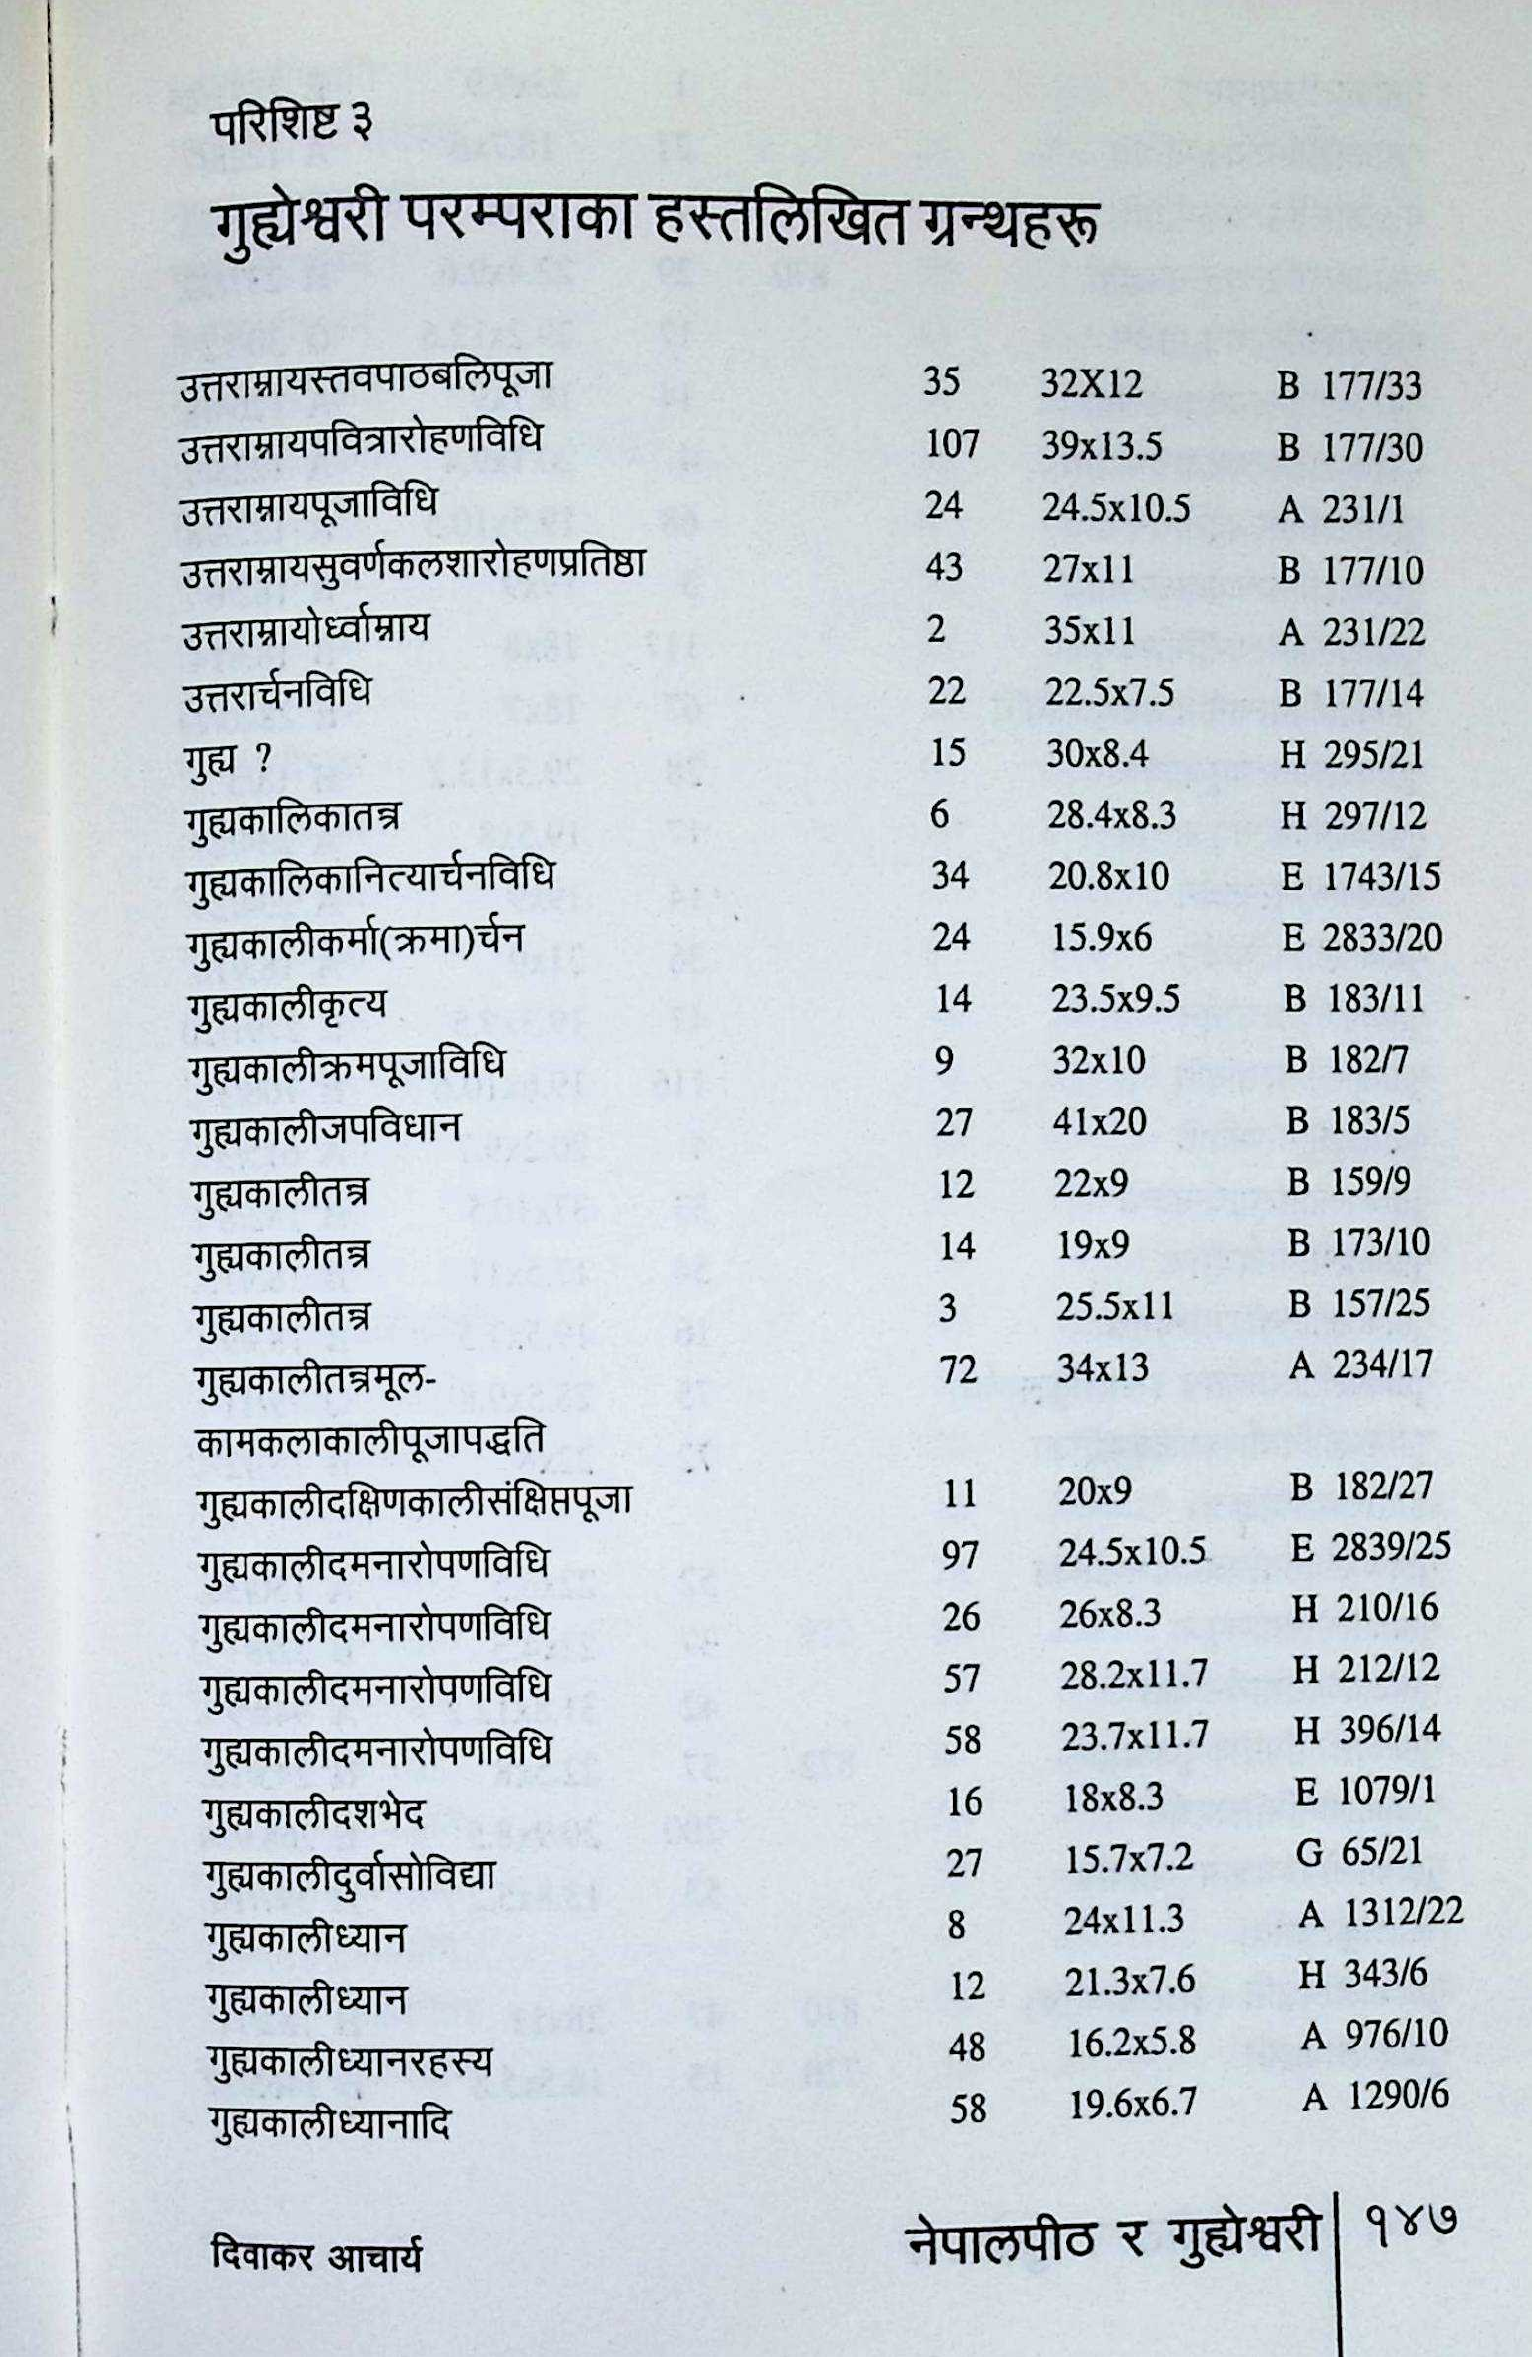 परिशिष्ट ३
गुह्येश्वरी परम्पराका हस्तलिखित ग्रन्थहरू
उत्तराम्नायस्तवपाठबलिपूजा 35 32X12 B 177/33
उत्तराम्नायपवित्रारोहणविधि 107 39x13.5 B 177/30
उत्तराम्नायपूजाविधि 24 24.5x10.5 A 231/1
उत्तराम्नायसुवर्णकलशारोहणप्रतिष्ठा 43 27x11 B 177/10
उत्तराम्नायोर्ध्वाम्नाय 2 35x11 A 231/22
उत्तरार्चनविधि 22 22.5x7.5 B 177/14
गुह्य ? 15 30x8.4 H 295/21
गुह्यकालिकातन्त्र 6 28.4x8.3 H 297/12
गुह्यकालिकानित्यार्चनविधि 34 20.8x10 E 1743/15
गुह्यकालीकर्मा(क्रमा)र्चन 24 15.9x6 E 2833/20
गुह्यकालीकृत्य 14 23.5x9.5 B 183/11
गुह्यकालीक्रमपूजाविधि 9 32x10 B 182/7
गुह्यकालीजपविधान 27 41x20 B 183/5
गुह्यकालीतन्त्र 12 22x9 B 159/9
गुह्यकालीतन्त्र 14 19x9 B 173/10
गुह्यकालीतन्त्र 3 25.5x11 B 157/25
गुह्यकालीतन्त्रमूल- 72 34x13 A 234/17
कामकलाकालीपूजापद्धति
गुह्यकालीदक्षिणकालीसंक्षिप्तपूजा 11 20x9 B 182/27
गुह्यकालीदमनारोपणविधि 97 24.5x10.5 E 2839/25
गुह्यकालीदमनारोपणविधि 26 26x8.3 H 210/16
गुह्यकालीदमनारोपणविधि 57 28.2x11.7 H 212/12
गुह्यकालीदमनारोपणविधि 58 23.7x11.7 H 396/14
गुह्यकालीदशभेद 16 18x8.3 E 1079/1
गुह्यकालीदुर्वासोविद्या 27 15.7x7.2 G 65/21
गुह्यकालीध्यान 8 24x11.3 A 1312/22
गुह्यकालीध्यान 12 21.3x7.6 H 343/6
गुह्यकालीध्यानरहस्य 48 16.2x5.8 A 976/10
गुह्यकालीध्यानादि 58 19.6x6.7 A 1290/6
दिवाकर आचार्य नेपालपीठ र गुह्येश्वरी १४७